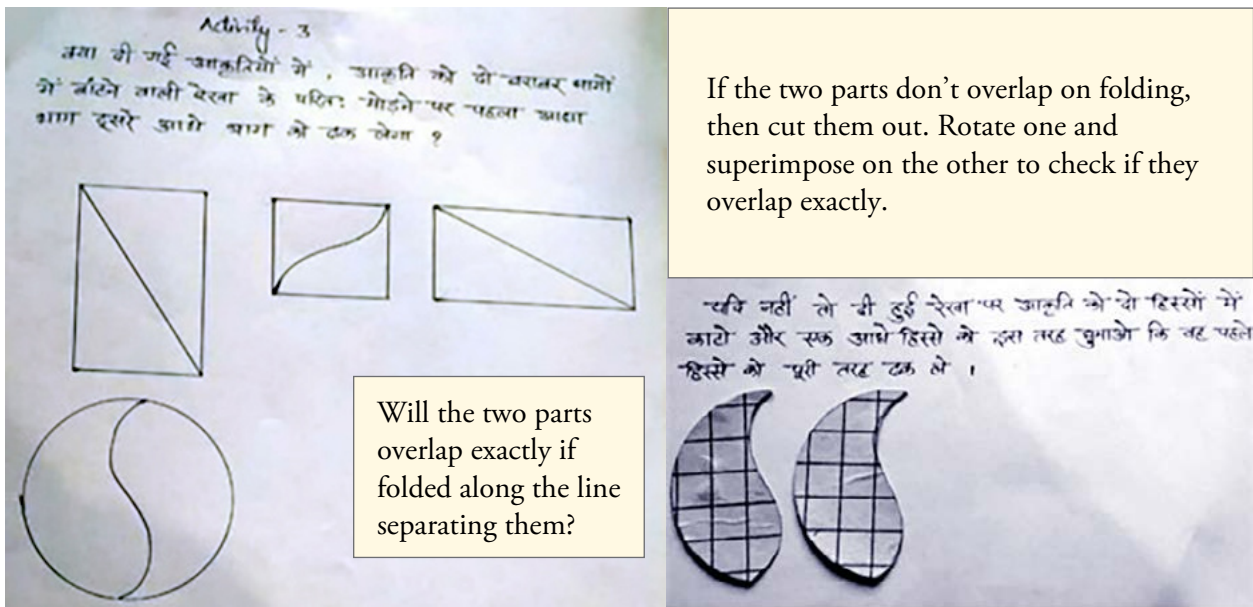 Activity - 3
क्या दी गई आकृतियों में, आकृति को दो बराबर भागों
में बाँटने वाली रेखा के परितः मोड़ने पर पहला आधा
भाग दूसरे आधे भाग को ढक लेगा ?
Will the two parts
overlap exactly if
folded along the line
separating them?
If the two parts don’t overlap on folding,
then cut them out. Rotate one and
superimpose on the other to check if they
overlap exactly.
यदि नहीं तो दी हुई रेखा पर आकृति को दो हिस्सों में
काटो और एक आधे हिस्से को इस तरह घुमाओ कि वह पहले
हिस्से को पूरी तरह ढक ले ।